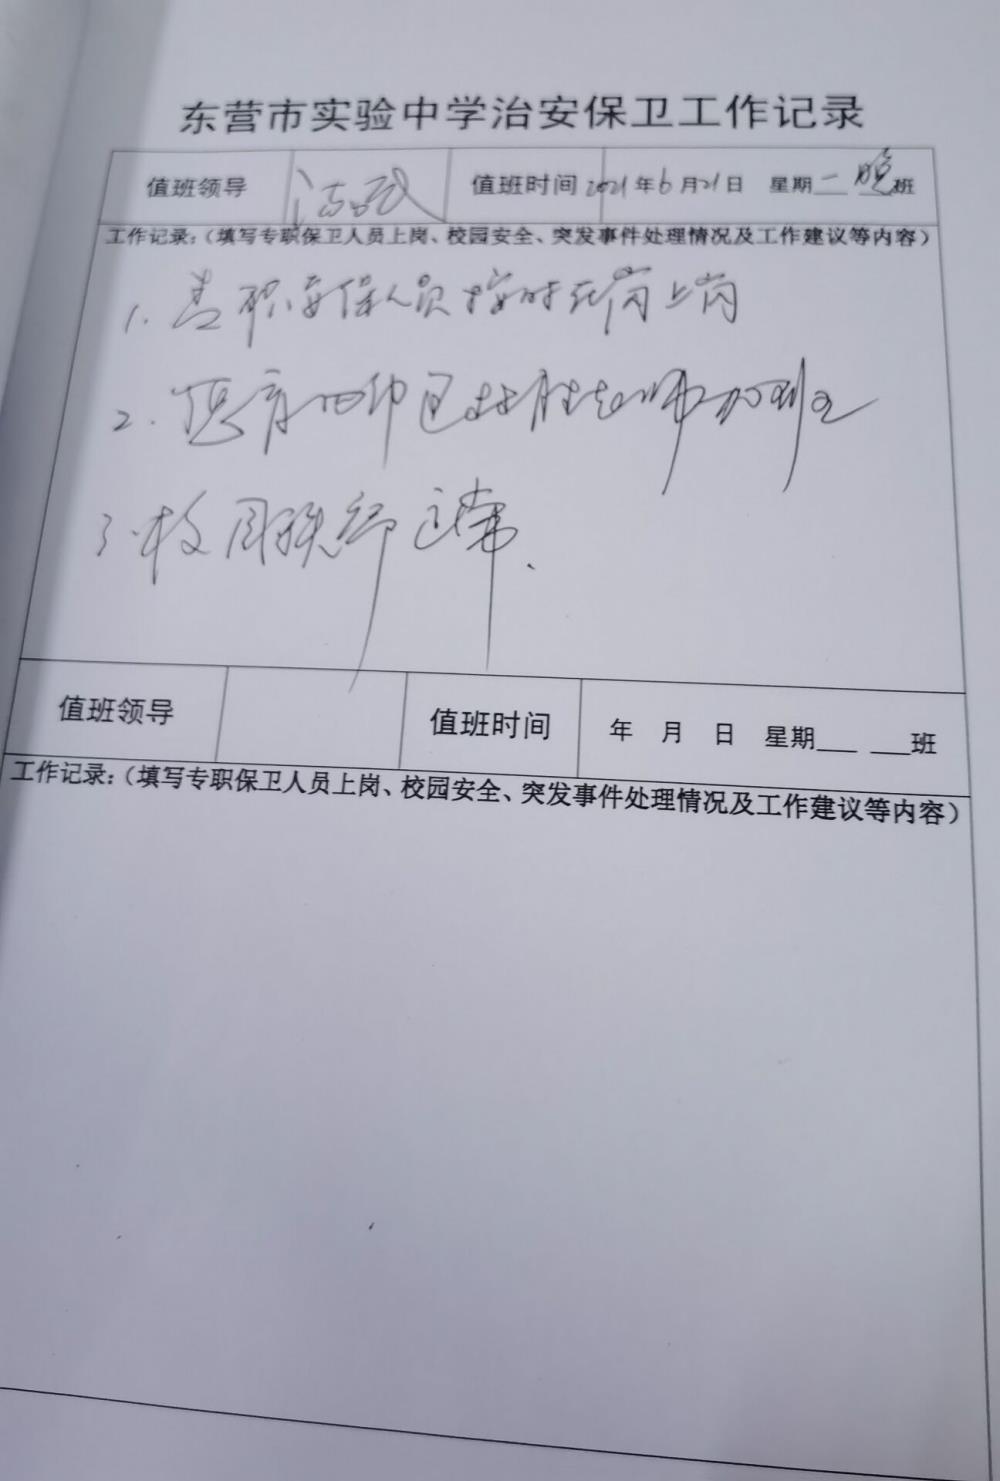 东营市实验中学治安保卫工作记录
值班领导 值班时间 2021年6月21日 星期一 晚班
工作记录:（填写专职保卫人员上岗、校园安全、突发事件处理情况及工作建议等内容）
1. 专职安保人员按时到岗上岗
2.
3. 校园秩序正常.
值班领导 值班时间 年 月 日 星期___ ___班
工作记录:（填写专职保卫人员上岗、校园安全、突发事件处理情况及工作建议等内容）